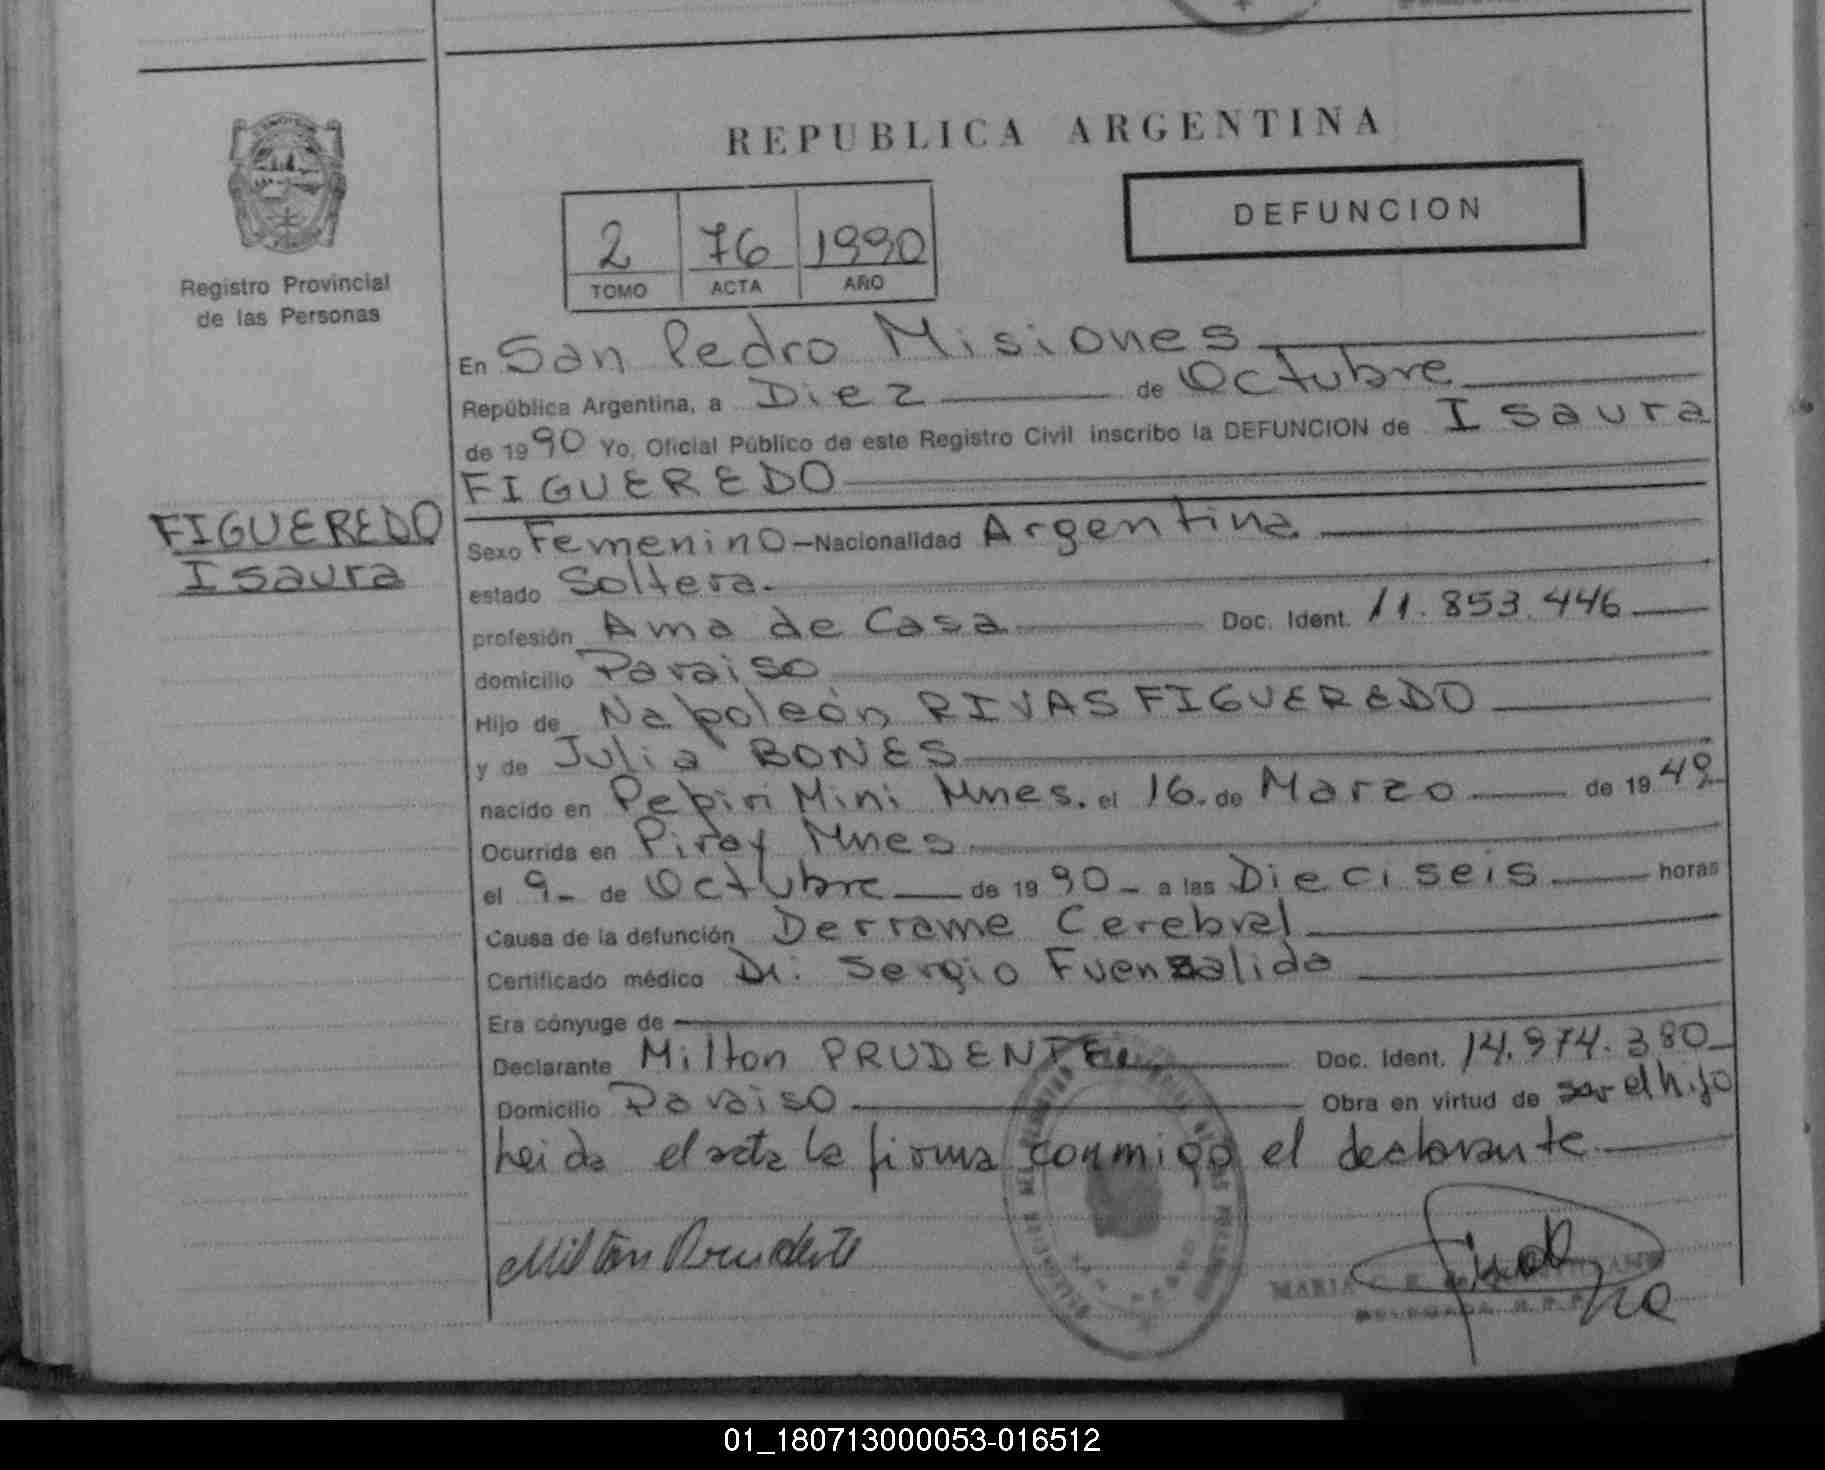 REPUBLICA ARGENTINA
DEFUNCION
2 76 1990
TOMO ACTA AÑO
Registro Provincial
de las Personas
En San Pedro Misiones
República Argentina, a Diez de Octubre
de 1990 Yo, Oficial Público de este Registro Civil inscribo la DEFUNCION de Isaura
FIGUEREDO
FIGUEREDO
Isaura
Sexo Femenino - Nacionalidad Argentina
estado Soltera.
profesión Ama de Casa Doc. Ident. 11.853.446
domicilio Paraiso
Hijo de Napoleón RIVAS FIGUEREDO
y de Julia BONES
nacido en Pepiri Mini Mnes. el 16. de Marzo de 1949
Ocurrida en Piray Mnes
el 9- de Octubre de 1990- a las Dieciseis horas
Causa de la defunción Derrame Cerebral
Certificado médico Dr. Sergio Fuenzalida
Era cónyuge de
Declarante Milton PRUDENTE Doc. Ident. 14.974.380
Domicilio Paraiso Obra en virtud de ser el hijo
Leida el acta la firma conmigo el declarante.
Milton Prudente
MARIA
DELEGADA R.P.P.
01_180713000053-016512